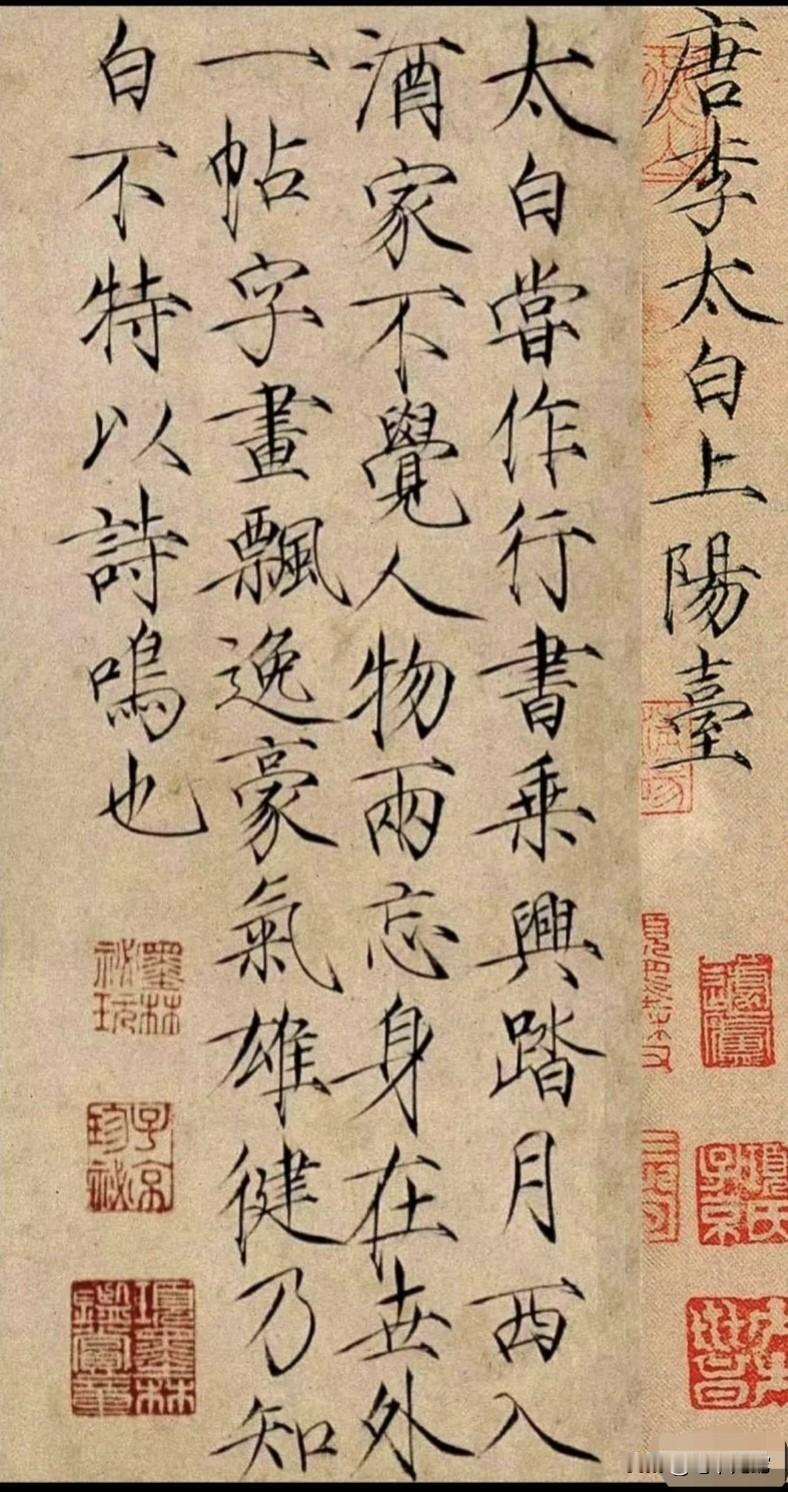 唐李太白上陽臺
太白嘗作行書乗興踏月西入
酒家不覺人物兩忘身在世外
一帖字畫飄逸豪氣雄健乃知
白不特以詩鳴也
墨林
祕玩
子京
珍祕
項墨林
鑑賞章